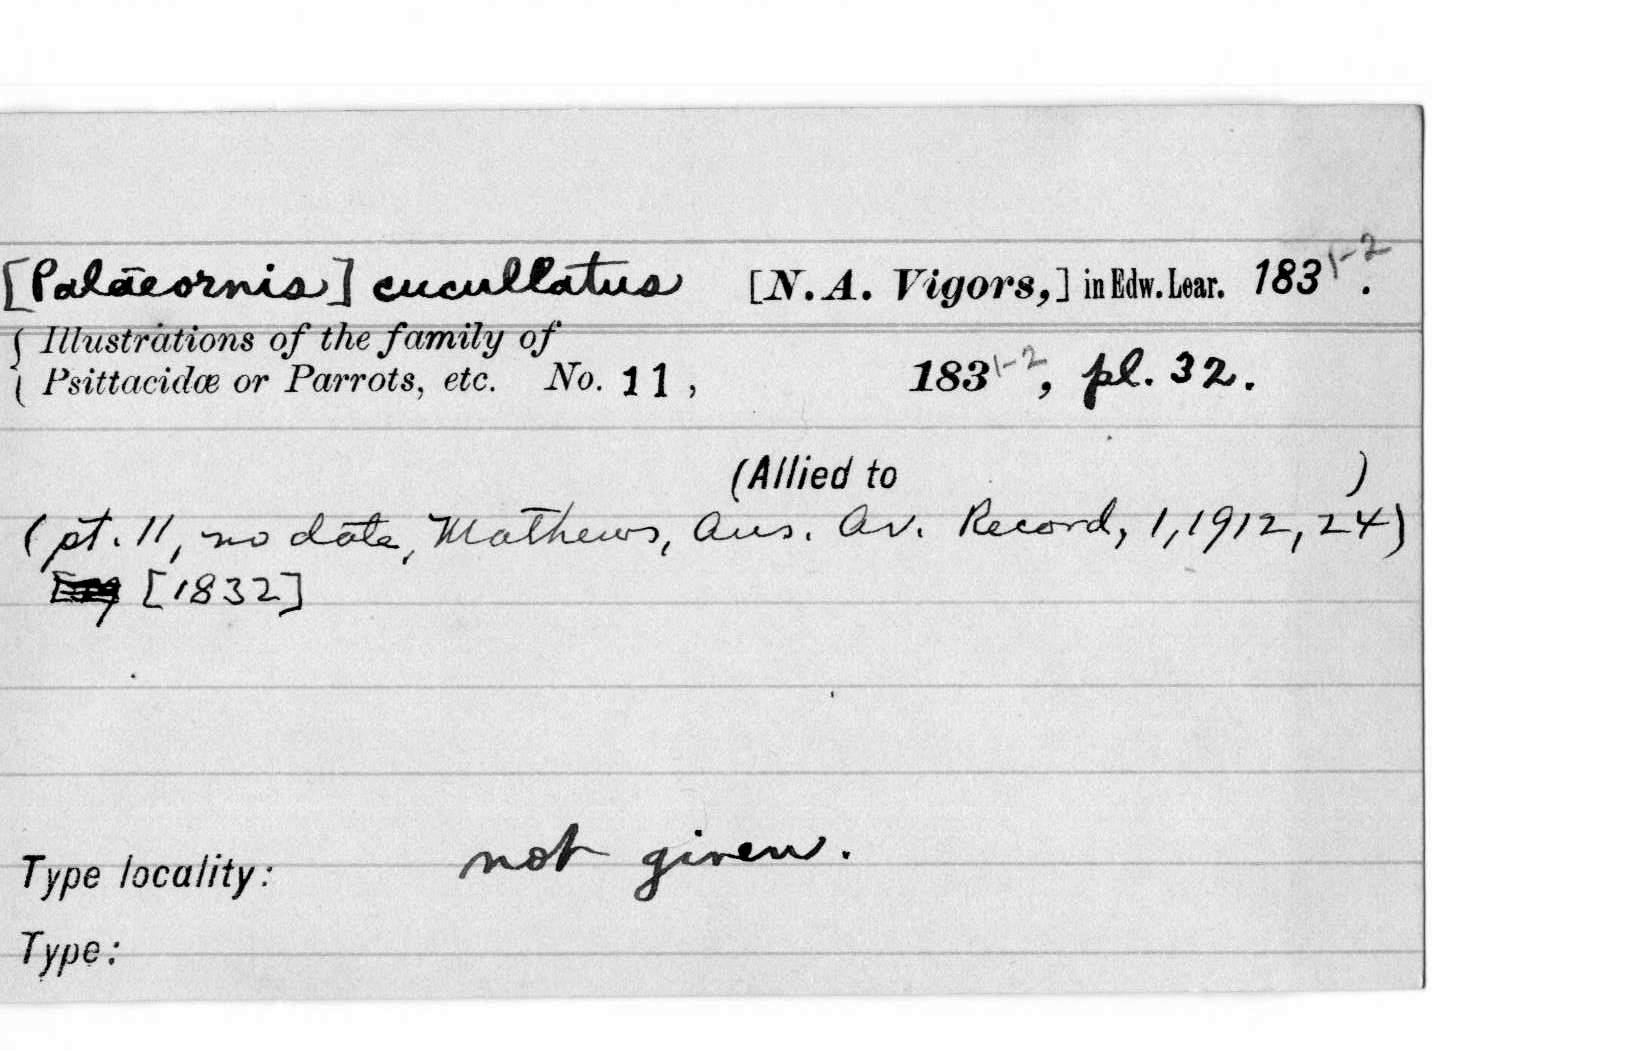 [Palaeornis] cucullatus [N. A. Vigors,] in Edw. Lear. 1831-2.
Illustrations of the family of
Psittacidæ or Parrots, etc. No. 11, 1831-2, pl. 32.
(Allied to )
(pt. 11, no date, Mathews, Aus. Av. Record, 1, 1912, 24)
[1832]
Type locality: not given.
Type: